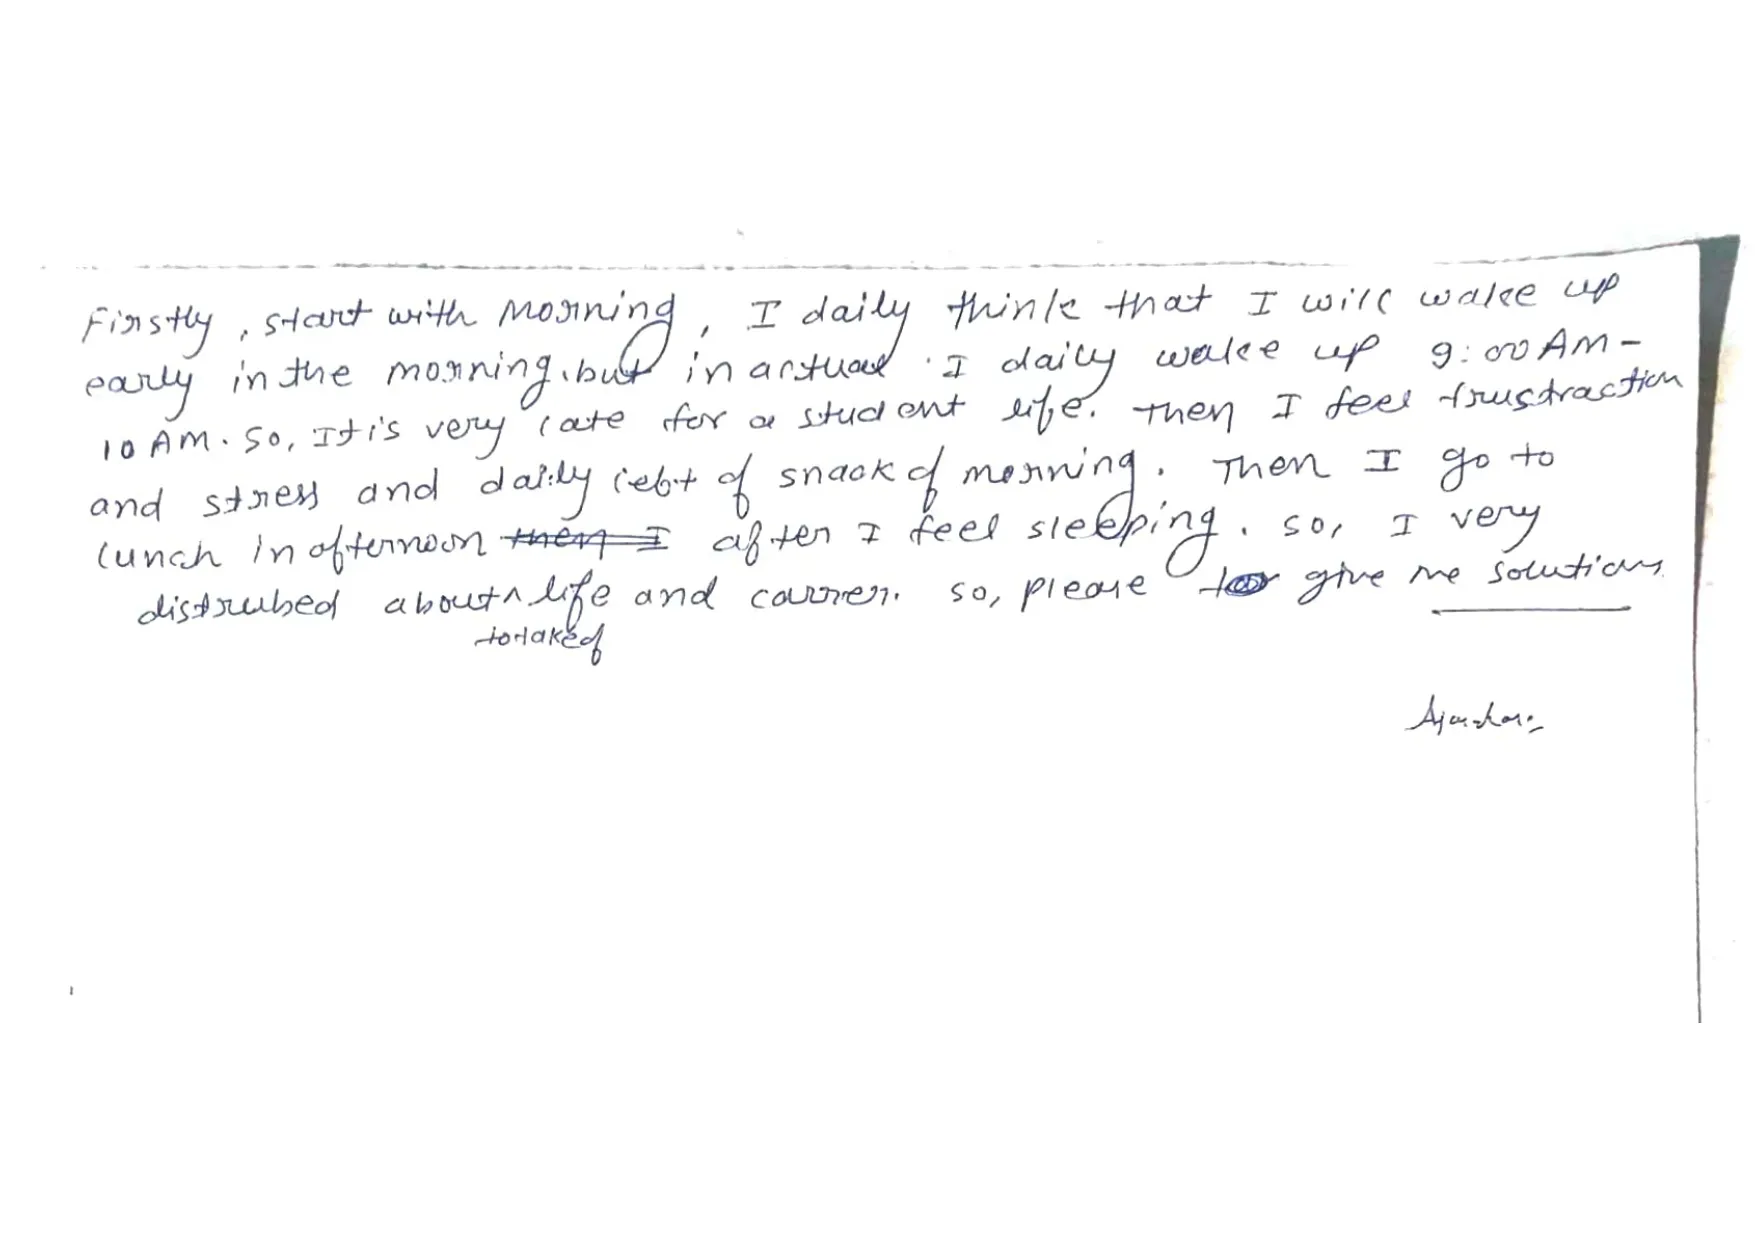 Firstly, start with morning, I daily think that I will wake up
early in the morning. but in actual I daily wake up 9:00 AM -
10 AM. So, It is very late for a student life. Then I feel frustraction
and stress and daily left of snack of morning. Then I go to
lunch in afternoon then I after I feel sleeping. so, I very
distrubed about ^ life and carrer. so, please give me solutions